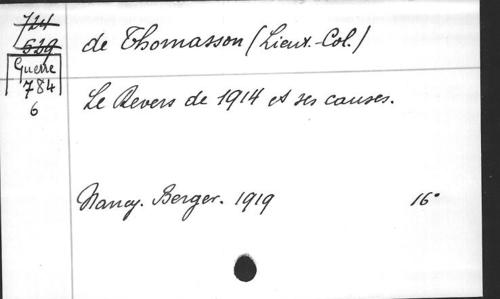 724
629
Guerre
784
6
de Thomasson (Lieut.-Col.)
Le Revers de 1914 et ses causes.
Nancy. Berger. 1919 16°